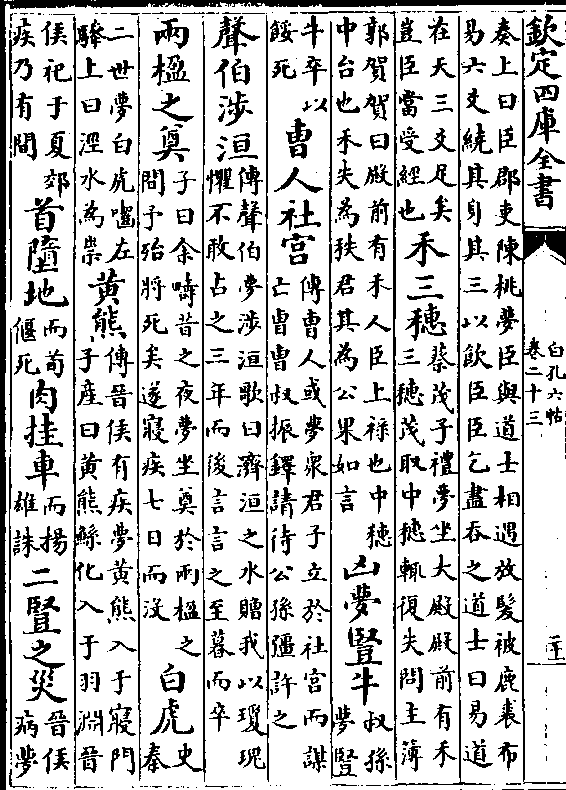 欽定四庫全書
白孔六帖
卷二十三
奏上曰臣郡吏陳桃夢臣與道士相遇放髮被鹿裘布
易六爻繞其身其三以飲臣臣乞盡吞之道士曰易道
在天三爻足矣
豈臣當受經也
禾三穗
蔡茂子禮夢坐大殿殿前有禾
三穗茂取中穗輙復失問主簿
郭賀賀曰殿前有禾人臣上祿也中穗
中台也禾失為秩君其為公果如言
凶夢豎牛
叔孫
夢豎
牛卒以
餒死
曹人社宫
傳曹人或夢衆君子立於社宫而謀
亡曹曹叔振鐸請待公孫彊許之
聲伯涉洹
傳聲伯夢涉洹歌曰濟洹之水贈我以瓊瑰
懼不敢占之三年而後言言之至暮而卒
兩楹之奠
子曰余疇昔之夜夢坐奠於兩楹之
間予殆將死矣遂寢疾七日而没
白虎
史
秦
二世夢白虎嚙左
驂上曰涇水為祟
黄熊
傳晉侯有疾夢黄熊入于寢門
子産曰黄熊鯀化入于羽淵晉
侯祀于夏郊
疾乃有間
首墮地
而荀
偃死
肉挂車
而揚
雄誅
二豎之災
晉侯
病夢